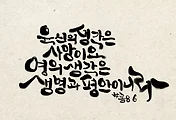 육신의 생각은
사망이요
영의 생각은
생명과 평안이니라
롬 8:6